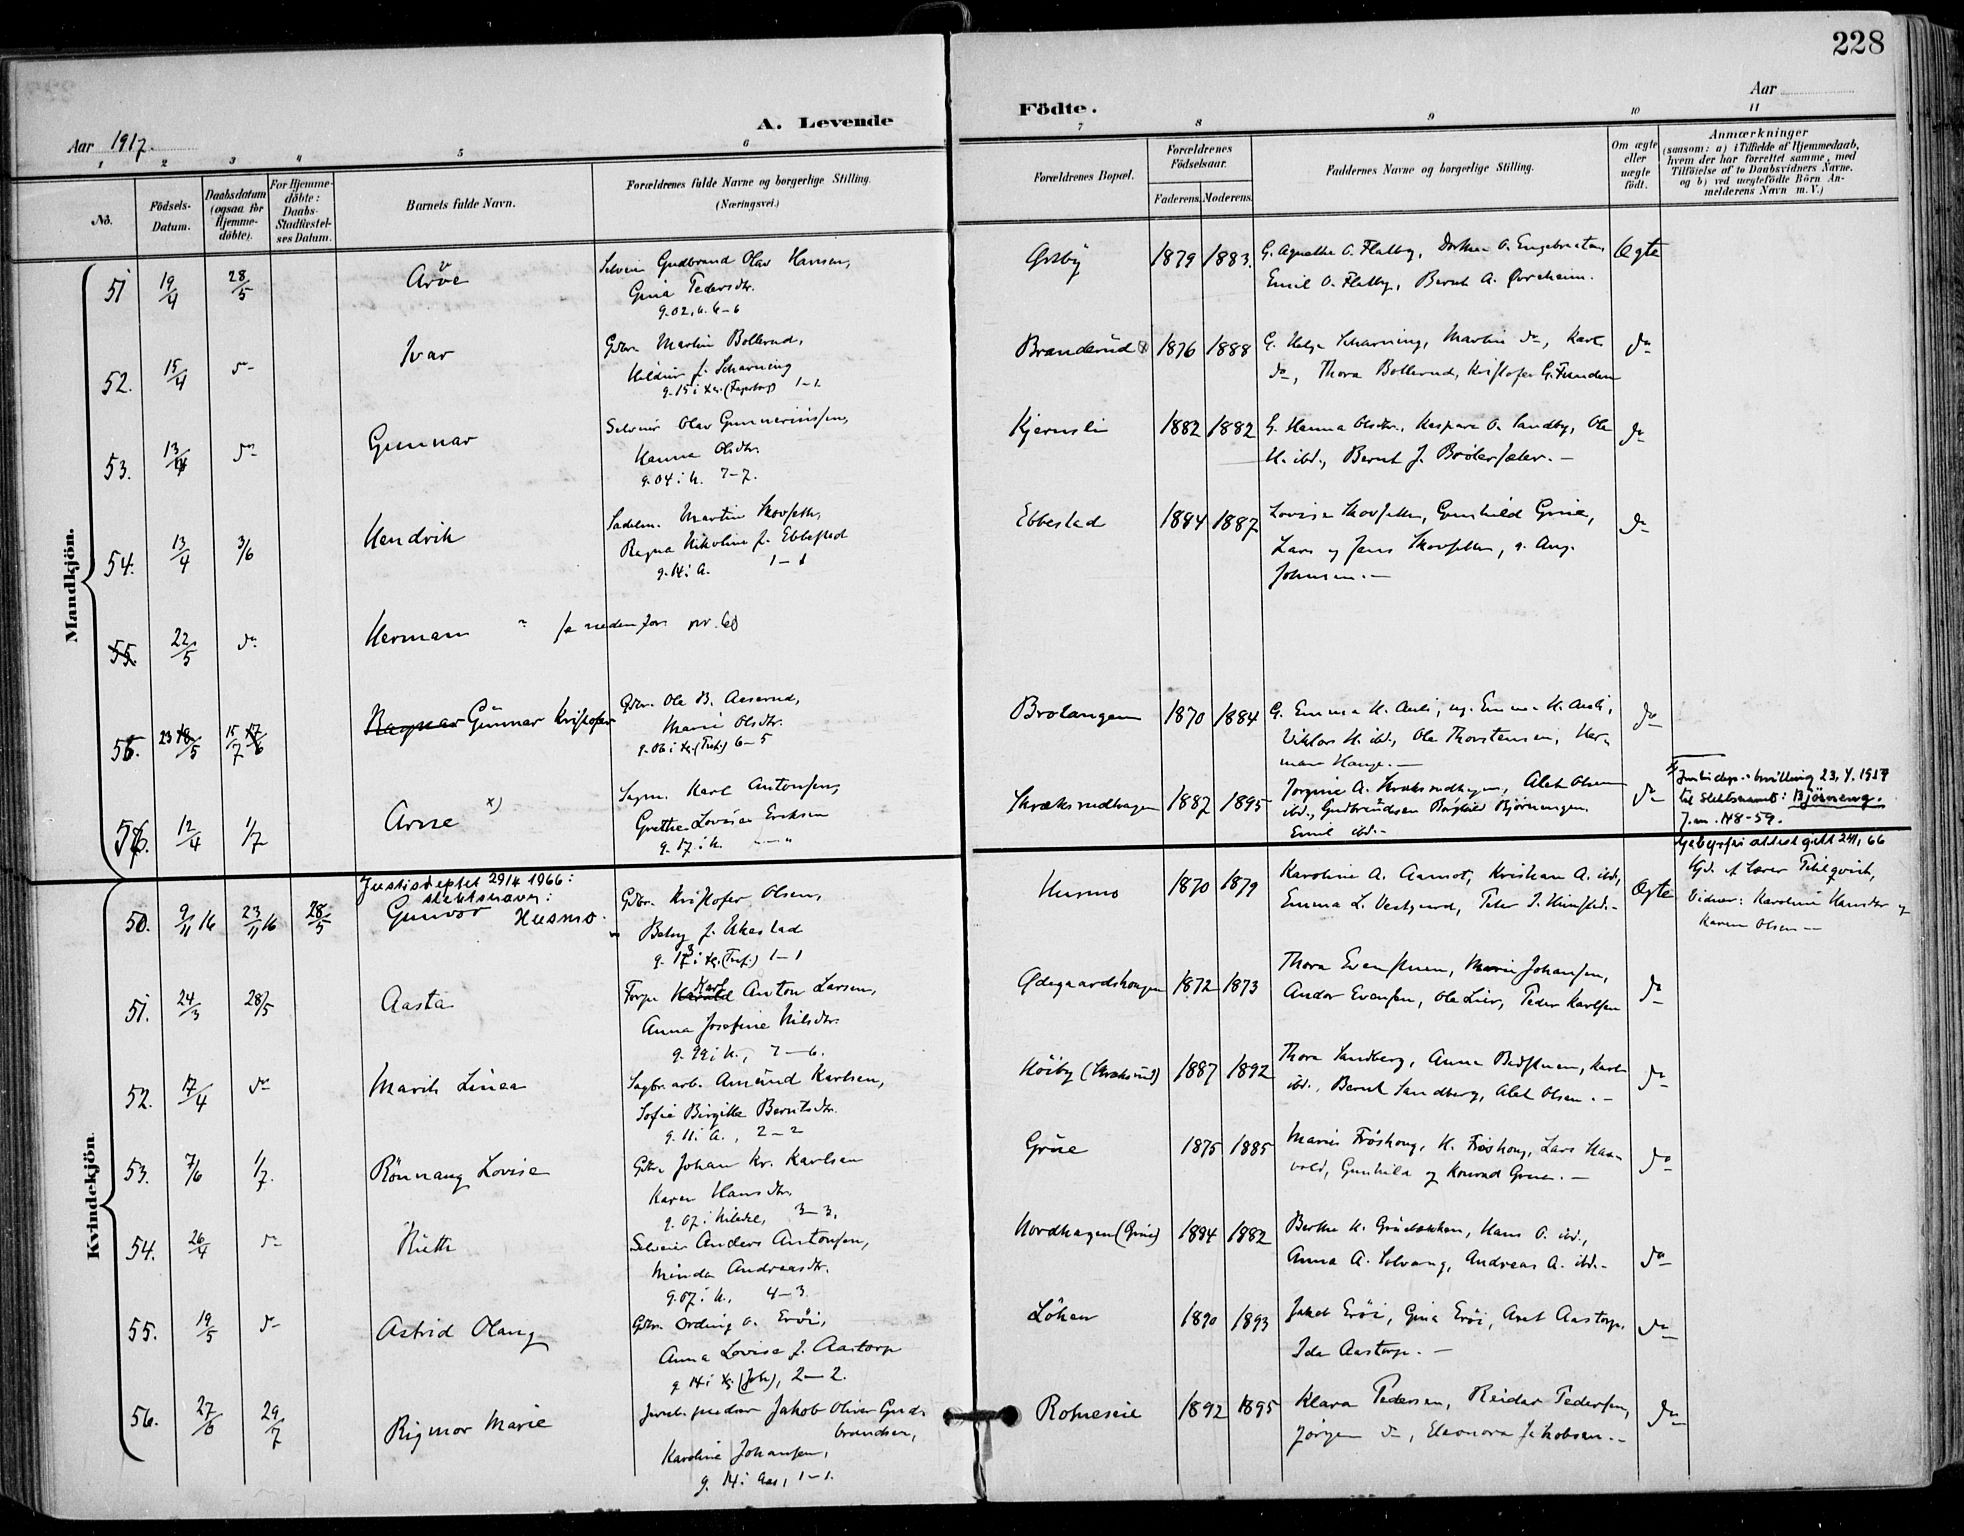 228
A. Levende
Födte.
Aar 1917.
Aar
1 2 3 4 5 6 7 8 9 10 11
No.
Födsels-
Datum.
Daabsdatum
(ogsaa for
Hjemme-
döbte).
For Hjemme-
döbte:
Daabs-
Stadfæstel-
ses Datum.
Barnets fulde Navn.
Forældrenes fulde Navne og borgerlige Stilling.
(Næringsvei.)
Forældrenes Bopæl.
Forældrenes
Födselsaar.
Faderens. Moderens.
Faddernes Navne og borgerlige Stilling.
Om ægte
eller
uægte
födt.
Anmærkninger
(saasom: a) i Tilfælde af Hjemmedaab,
hvem der har forrettet samme, med
Tilföielse af to Daabsvidners Navne.
og b) ved uægtefödte Börn An-
melderens Navn m. V.)
Mandkjön.
51 19/4 28/5 Arve
Selveier Gudbrand Olav Hansen,
Gina Pedersdtr.
1879 1883.
G. Agnethe O. Flatby, Dorthea O. Engebretsen
Emil O. Flatby, Bernt A.
Ægte
52. 15/4 do Ivar
Gdbr. Martin Bollerud,
Hildur f. Scharning
Branderud 1876 1888
G. Helga Scharning, Martin do, Karl
do, Thora Bollerud, Kristofer G.
do
53. 13/4 do Gunnar
Selveier Olav Gunneriussen,
Hanna Olsdtr.
g. 04 i h. 7-7.
Kjernsli 1882 1882
G. Hanna Olsdtr., Kaspara O. Sandby, Ole
H. ibd., Bernt J.
do
54. 13/4 3/6 Hendrik
Sadelm. Martin Skovseth,
Ragna Nikoline f. Ebbestad
g. 14 i A. 1-1
Ebbestad 1884 1887
Lovise Skovseth, Gunhild Grue,
Lars og Jens Skovseth, g. Aug.
Johnsen.
do
55. 22/5 do Hermann
se nedenfor nr. 60
56. 23/5 15/7 Ragnar Gunnar Kristofer
Gdbr. Ole B. Aaserud,
Marie Olsdtr.
6-5
Brolangen 1870 1884
G. Emma H. Auli, ug. Emma H. Auli,
Viktor H. ibd., Ole Thorstensen, Her-
man Hauge.
do
56. 12/4 1/7 Arne x)
Sagm. Karl Antonsen,
Grethe Lovise Eriksen
g. 17 i h.
Skøksrudhagen 1887 1895
Jorgine A. Skøksrudhagen, Alet Olsen
ibd., Gudbrandsen Borghild Björnengen
Emil ibd.
do
x) Justisdep.s bevilling 23.4.1959
til slektsnavnet: Björneng.
J.nr. 148-59.
Kvindekjön.
Justisdeptet 29/4 1966:
slektsnavn:
50. 9/11 16 23/11 16 28/5 Gunvor Husmo
Gdbr. Kristofer Olsen,
Betsy f. Ukestad
1-1
Husmo 1870 1879
Karoline A. Aamot, Kristian A. ibd.,
Emma L. Vestgaard, Peter J.
Ægte
Gebyrfri attest gitt 24/1, 66
Hjd. af Lærer
Vidner: Karoline Hansdtr og
Karen Olsen
51. 24/3 28/5 Aasta
Forp. Harald Karl Anton Larsen,
Anna Josefine Nilsdtr.
g. 99 i h., 7-6.
Ødegaardshaugen 1872 1873
Thora Evensen, Marie Johansen,
Andor Evensen, Ole Lier, Peder Karlsen
do
52. 17/4 do Marit Linea
Sagbr.arb. Amund Karlsen,
Sofie Birgitte Berntsdtr.
g. 11 i A., 2-2
Høiby (Skøksrud) 1887 1892
Thora Sandberg, Anna Badstuen, Karl
ibd., Bernt Sandberg, Alet Olsen.
do
53. 7/6 1/7. Rönnaug Lovise
Gdbr. Johan Kr. Karlsen
Karen Hansdtr.
3-3.
Grue 1875 1885
Marie Frøshaug, H. Frøshaug, Lars Haa-
vold, Gunhild og Konrad Grue.
do
54. 26/4 do Ruth
Selveier Anders Antonsen,
Minda Andreasdtr.
g. 07 i h., 4-3.
Nordhagen (Grue) 1884 1882
Berthe H. Grueløkken, Hans O. ibd.,
Anna A. Solvang, Andreas A. ibd.
do
55. 19/5 do Astrid Olaug
Gdbr. Ording O. Eröi,
Anna Lovise f. Aastorp
2-2.
Löken 1890 1893
Jakob Eröi, Gina Eröi, Aret Aastorp,
Ida Aastorp.
do
56. 27/6 29/7 Rigmor Marie
Jakob Oliver Gud-
brandsen,
Karoline Johansen,
g. 14 i Aas, 1-1.
1892 1895
Klara Pedersen, Reidar Pedersen,
Jørgen do, Eleonora Jakobsen.
do